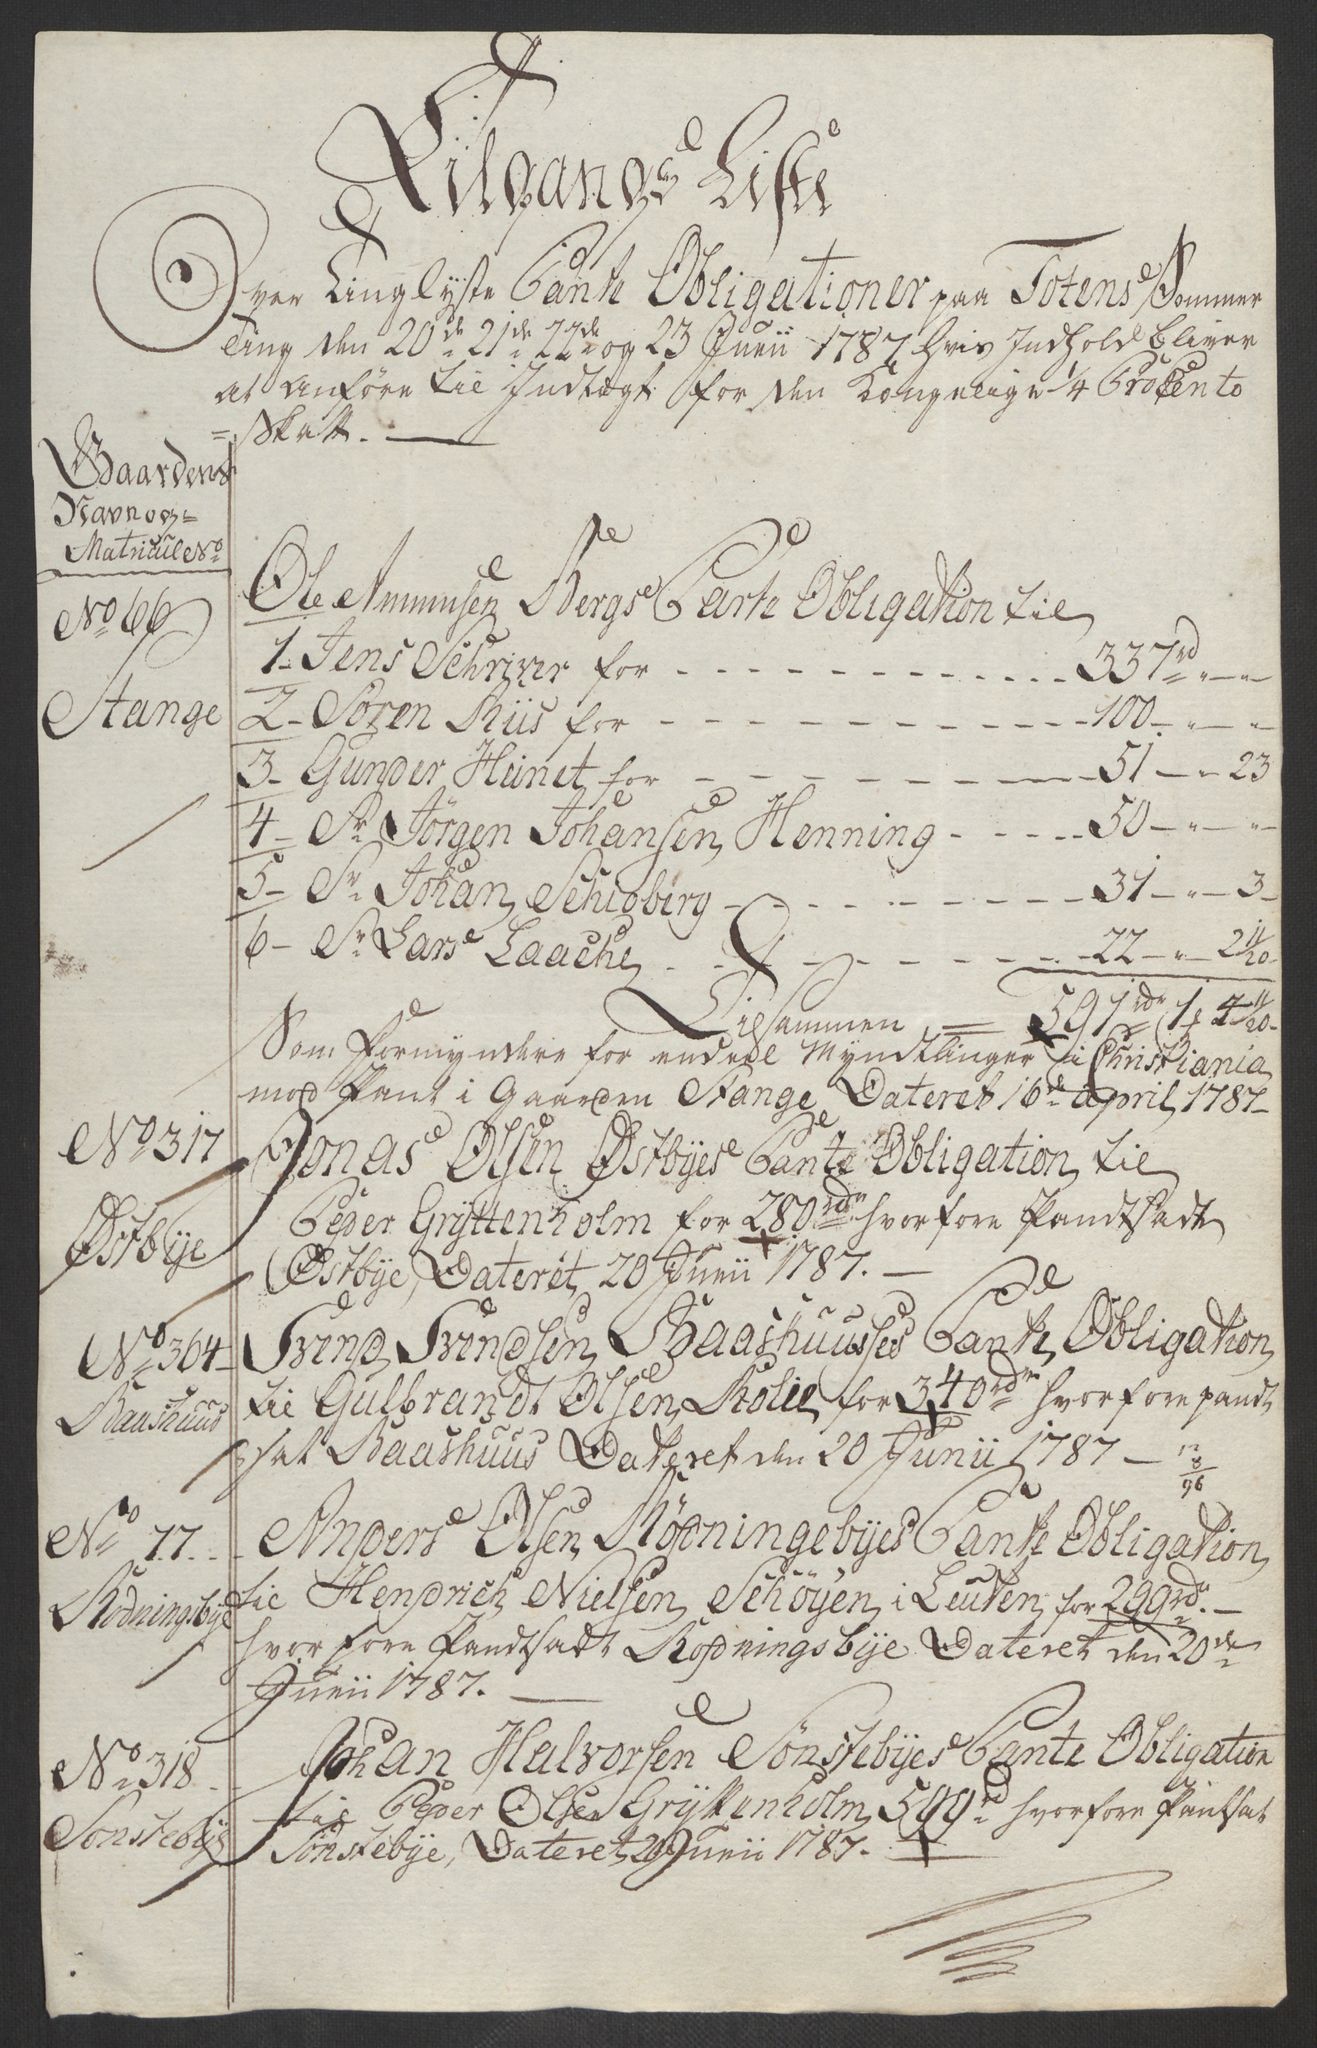 Tilgangs Liste
Over Tinglyste Pante Obligationer paa Totens Sommer
Ting den 20de 21de 22de og 23 Junii 1787 hvis Indhold bliver
at anføre til Indtægt for den Kongelige 1/4 Procento
Skatt.
Gaardens
Navn og
Matricul No
Ole Ammunsen Bergs Pante Obligation til
No 66
1. Jens Schriver for 337 rd " "
Stange
2 Søren Riis for 100 " "
3 Gunder Hünet for 51 " 23
4 Sr Jörgen Johansen Henning 50 " "
5 Sr Johan Schioberg 31 " 3
6 Sr Lars Laache 22 " 2 11/20
Tilsammen 591 rdr 1 4 11/20
Som Formyndere for endeel Myndtlinger i Christiania
mod Pant i Gaarden Stange Dateret 16de april 1787
No 317
Jonas Olsen Østbyes Pante Obligation til
Østbye
Peder Gryttenholm for 280 rdr hvorfore Pandtsadt
Østbye, Dateret 20 Junii 1787.
No 364
Svend Svendsen Baashuuses Pante Obligation
Baashuus
til Gulbrandt Olsen Kolie for 340 rdr hvorfore pandt
sat Baashuus Dateret den 20 Junii 1787
12
8
96
No 77
Anders Olsen Rödningebyes Pante Obligation
Rödningsbye
til Hendrich Nielsen Schöyen i Leuten for 299 rdr.
hvorfore Pandtsadt Rodningsbye Dateret den 20de
Junii 1787.
No 318
Johan Halvorsen Sönstebyes Pante Obligation
Sonstebye
til Peder Olsen Gryttenholm 599 rd hvorfore Pantsat
Sönstebye, Dateret 20 Junii 1787.